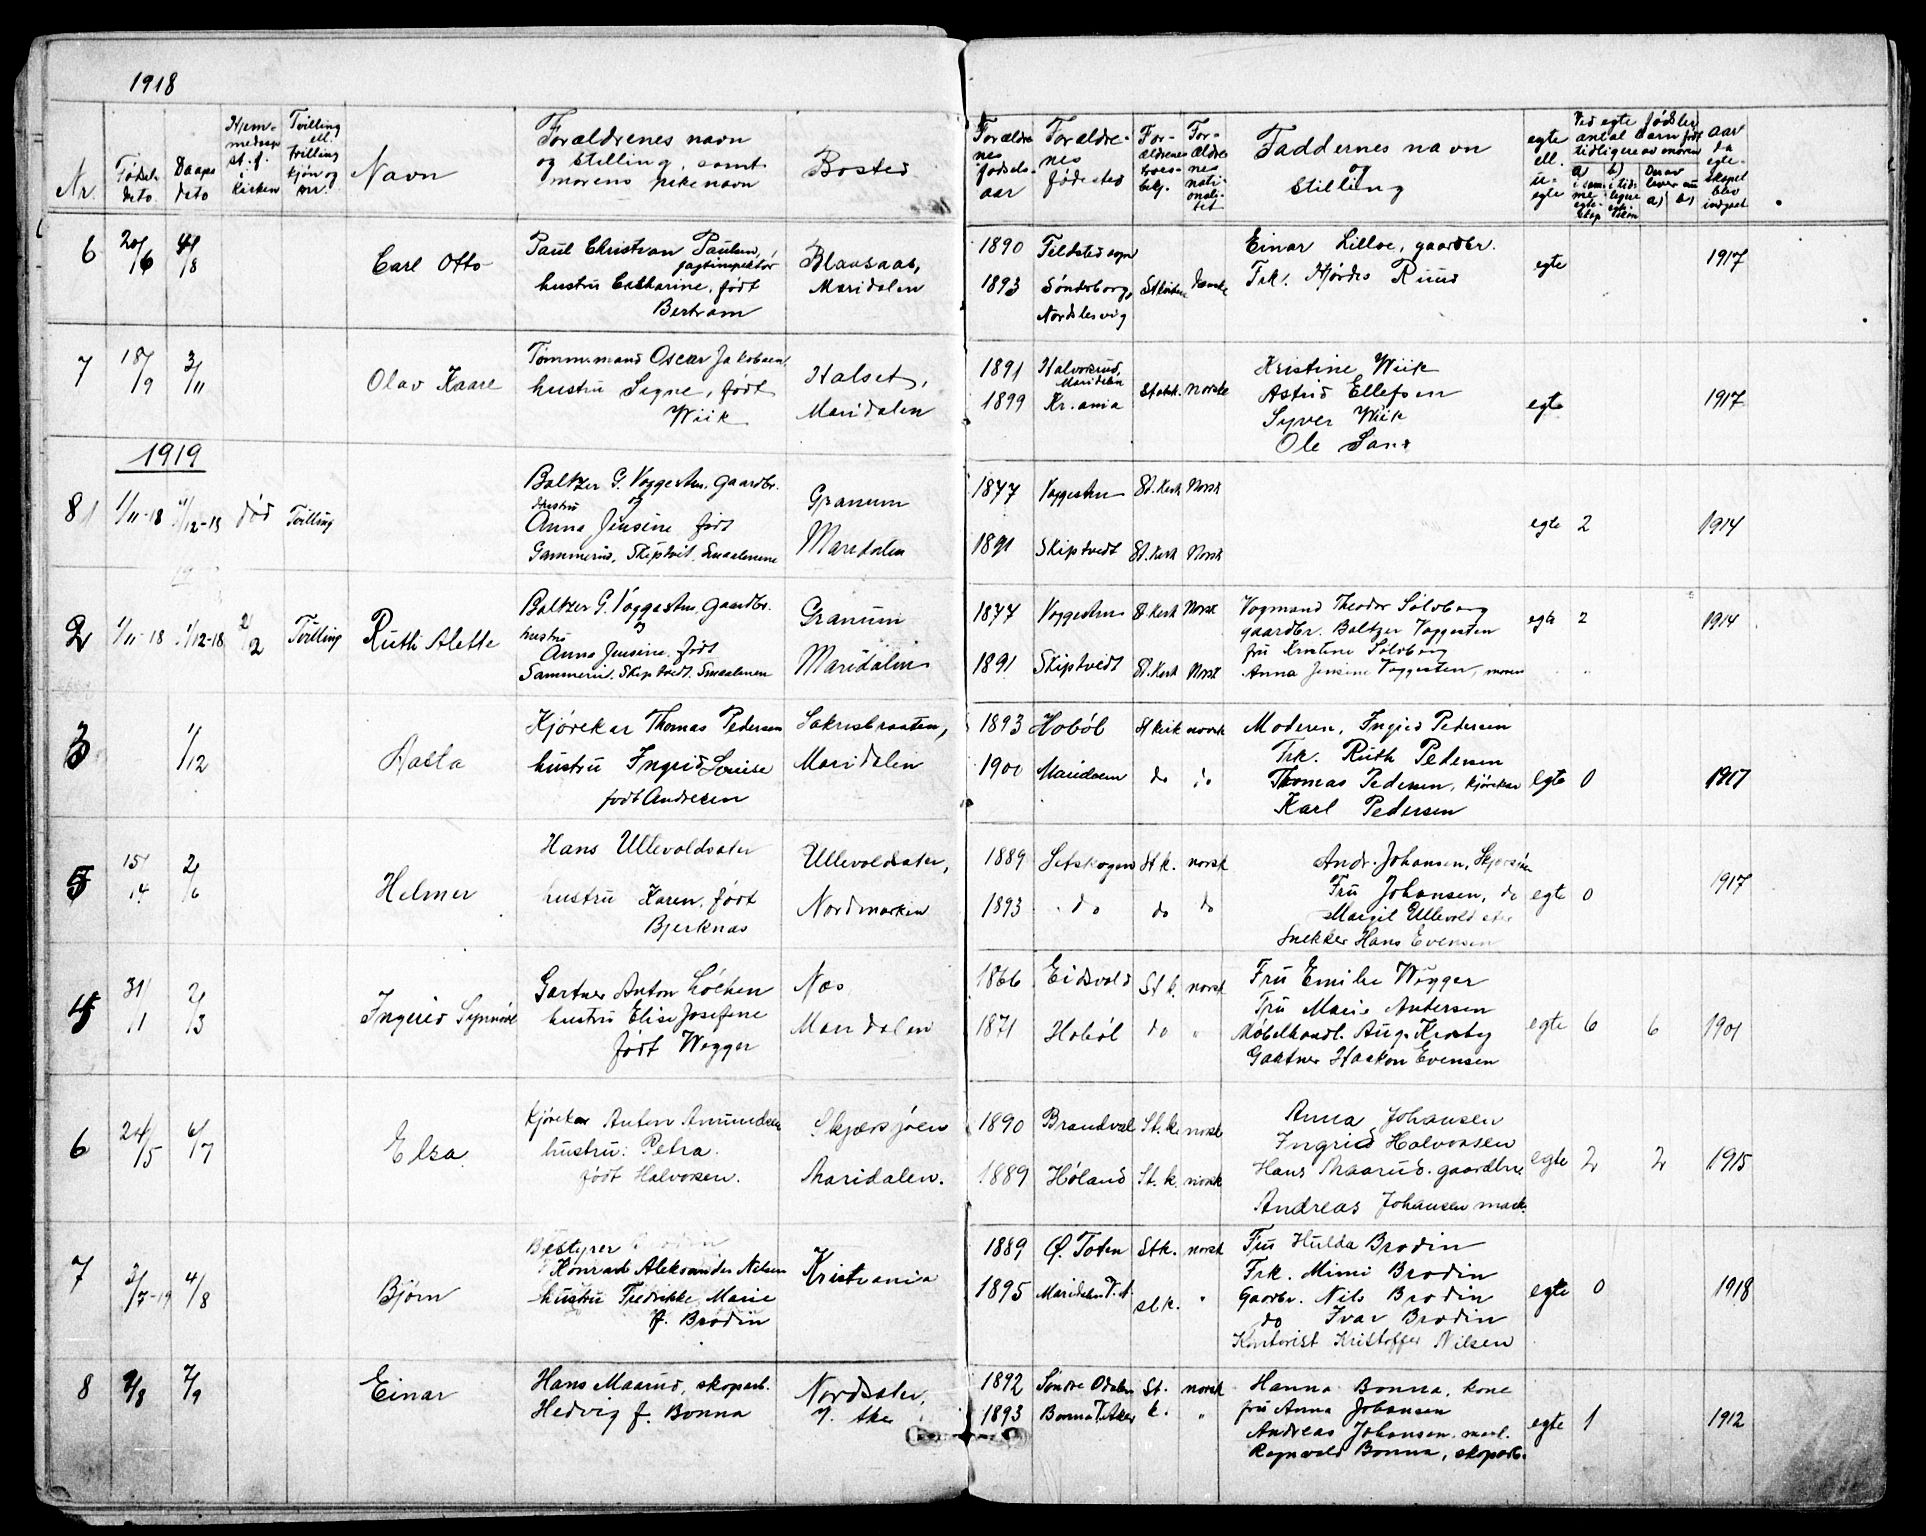 1918
Nr. Føds. dato Daaps dato Navn Forældrenes navn og stilling, samt morens pikenavn Bosted
Forældrenes fødselsaar Forældrenes fødested Faddernes navn og stilling egte ell. uegte aar da egteskapet blev indgaat
6 20/6 4/8 Carl Otto
Paul Christian Paulsen, jagtinspektør
hustru Catharine, født
Bertram
Blaasaas,
Maridalen
1890
1893 Sønderborg, Nordslesvig danske
Einar Lilloe, gaardbr.
Frk. Hjørdis Ruud
egte 1917
7 18/9 3/11 Olav Kaare
Tømmermand Oscar Jakobsen
hustru Signe, født
Wiik
Halset,
Maridalen
1891 Halvorsrud, Maridalen
1899 Kr.ania Statsk. Norske
Kristine Wiik
Astrid Ellefsen
Syver Wiik
Ole
egte 1917
1919
1 1/11-18 1/12-18 død Tvilling
Baltzer G. Voggesten, gaardbr.
og
hustru
Anna Jensine født
Skiptvet, Smaalenene
Granum
Maridalen
1877 Voggesten St. kirk Norsk
1891 Skiptvedt St. kirk Norsk
egte 2 1914
2 1/11-18 1/12-18 2/2 Tvilling Ruth Alette
Baltzer G. Voggesten, gaardbr.
og
hustru
Anna Jensine, født
Skiptvedt, Smaalenene
Granum
Maridalen
1877 Voggesten St. kirk Norsk
1891 Skiptvedt St. kirk Norsk
Theodor Solvborg
gaardbr. Baltzer Voggesten
fru Kristine Solvborg
Anna Jensine Voggesten, moren
egte 2 1914
3 1/12 Aasta
Kjørekar Thomas Pedersen
hustru Ingrid Louise
født Andresen
Sakrisbraaten,
Maridalen
1893 Hobøl St kirk norsk
1900 Maridalen do do
Moderen, Ingrid Pedersen
Frk. Ruth Pedersen
Thomas Pedersen, kjørekar
Karl Pedersen
egte 0 1917
5 15/4 2/6 Helmer
Hans Ullevoldsæter
hustru Karen, født
Bjerknas
Ullevoldsæter,
Nordmarken
1889 Setskogen St k. norsk
1893 do do do
Andr. Johansen,
Fru Johansen, do
Margit Ullevoldsæter
Snekker Hans Evensen
egte 0 1917
4 31/1 2/3 Ingerid Synnøve
Gartner Anton Løchen
hustru Elise Josefine
født Wegger
Næs
Maridalen
1866 Eidsvold St k. norsk
1871 Hobøl do "
Fru Emilie Wegger
Fru Marie Andersen
Møbelhandl. Aug. Krosby
Gartner Haakon Evensen
egte 6 6 1901
6 24/5 6/7 Elsa
Kjørekar Anton Amundsen
hustru: Petra.
født Halvorsen.
Skjærsjøen
Maridalen.
1890 Brandval St. k. norsk
1889 Høland St. k. norsk
Anna Johansen
Ingrid Halvorsen
Hans Maarud. gaardbru
Andreas Johansen mask.
egte 2 2 1915
7 3/7-19 4/8 Bjørn
Bestyrer
Konrad Aleksander Nilsen
hustru Fredrikke Marie
f. Brodin
Kristiania
1889 Ø. Toten St k. norsk
1895 Maridalen V. A. st. k. "
Fru Hulda Brodin
Frk. Mimi Brodin
Gaardbr. Nils Brodin
do Ivar Brodin
Kontorist Kristoffer Nilsen
egte 0 1918
8 2/8 7/9 Einar
Hans Maarud, skogarb.
Hedvig f. Bonna
Nordsæter,
V. Aker
1892 Søndre Odalen St. norsk
1893 Bonna V. Aker k. "
Hanna Bonna, kone
fru Anna Johansen
Andreas Johansen, mask.
Ragnvald Bonna, skogarb.
egte 1 1912